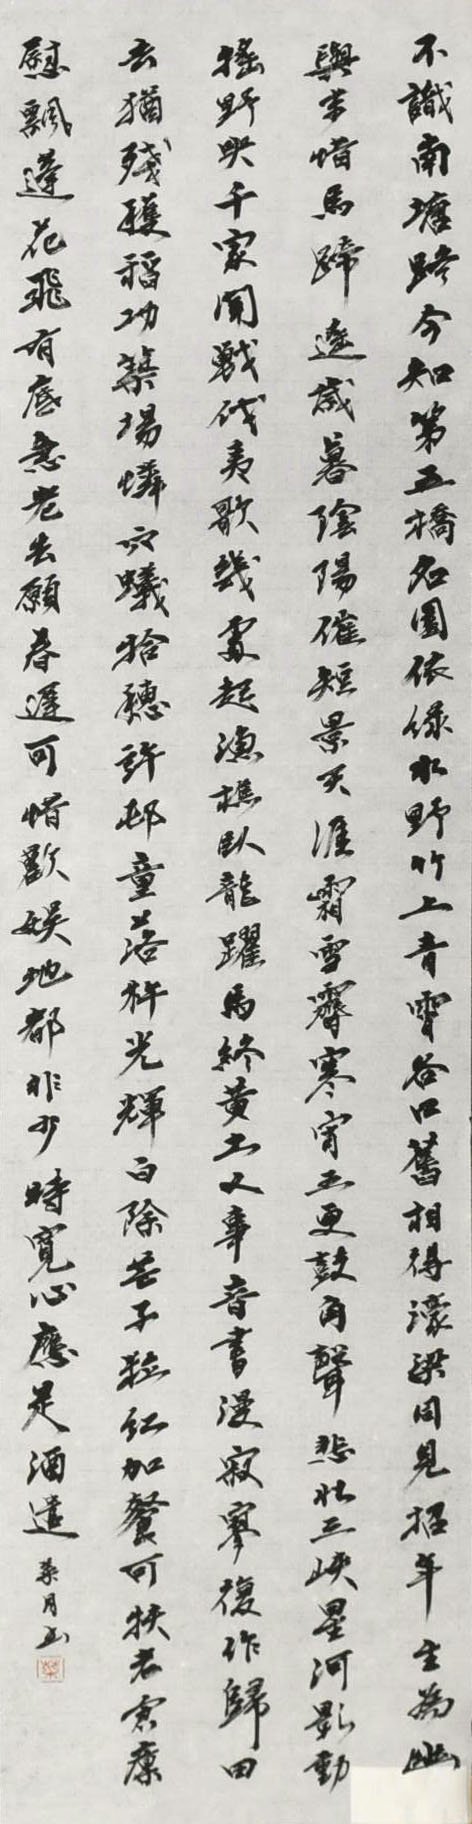 不識南塘路今知第五橋名園依綠水野竹上青霄谷口舊相得濠梁同見招平生為幽
興未惜馬蹄遙歲暮陰陽催短景天涯霜雪霽寒宵五更鼓角聲悲壯三峽星河影動
搖野哭千家聞戰伐夷歌幾處起漁樵臥龍躍馬終黃土人事音書漫寂寥復作歸田
去猶殘穫稻功築場憐穴蟻拾穗許邨童落杵光輝白除芒子粒紅加餐可扶老倉廩
慰飄蓬花飛有底急老去願春遲可惜歡娛地都非少時寬心應是酒遣 月